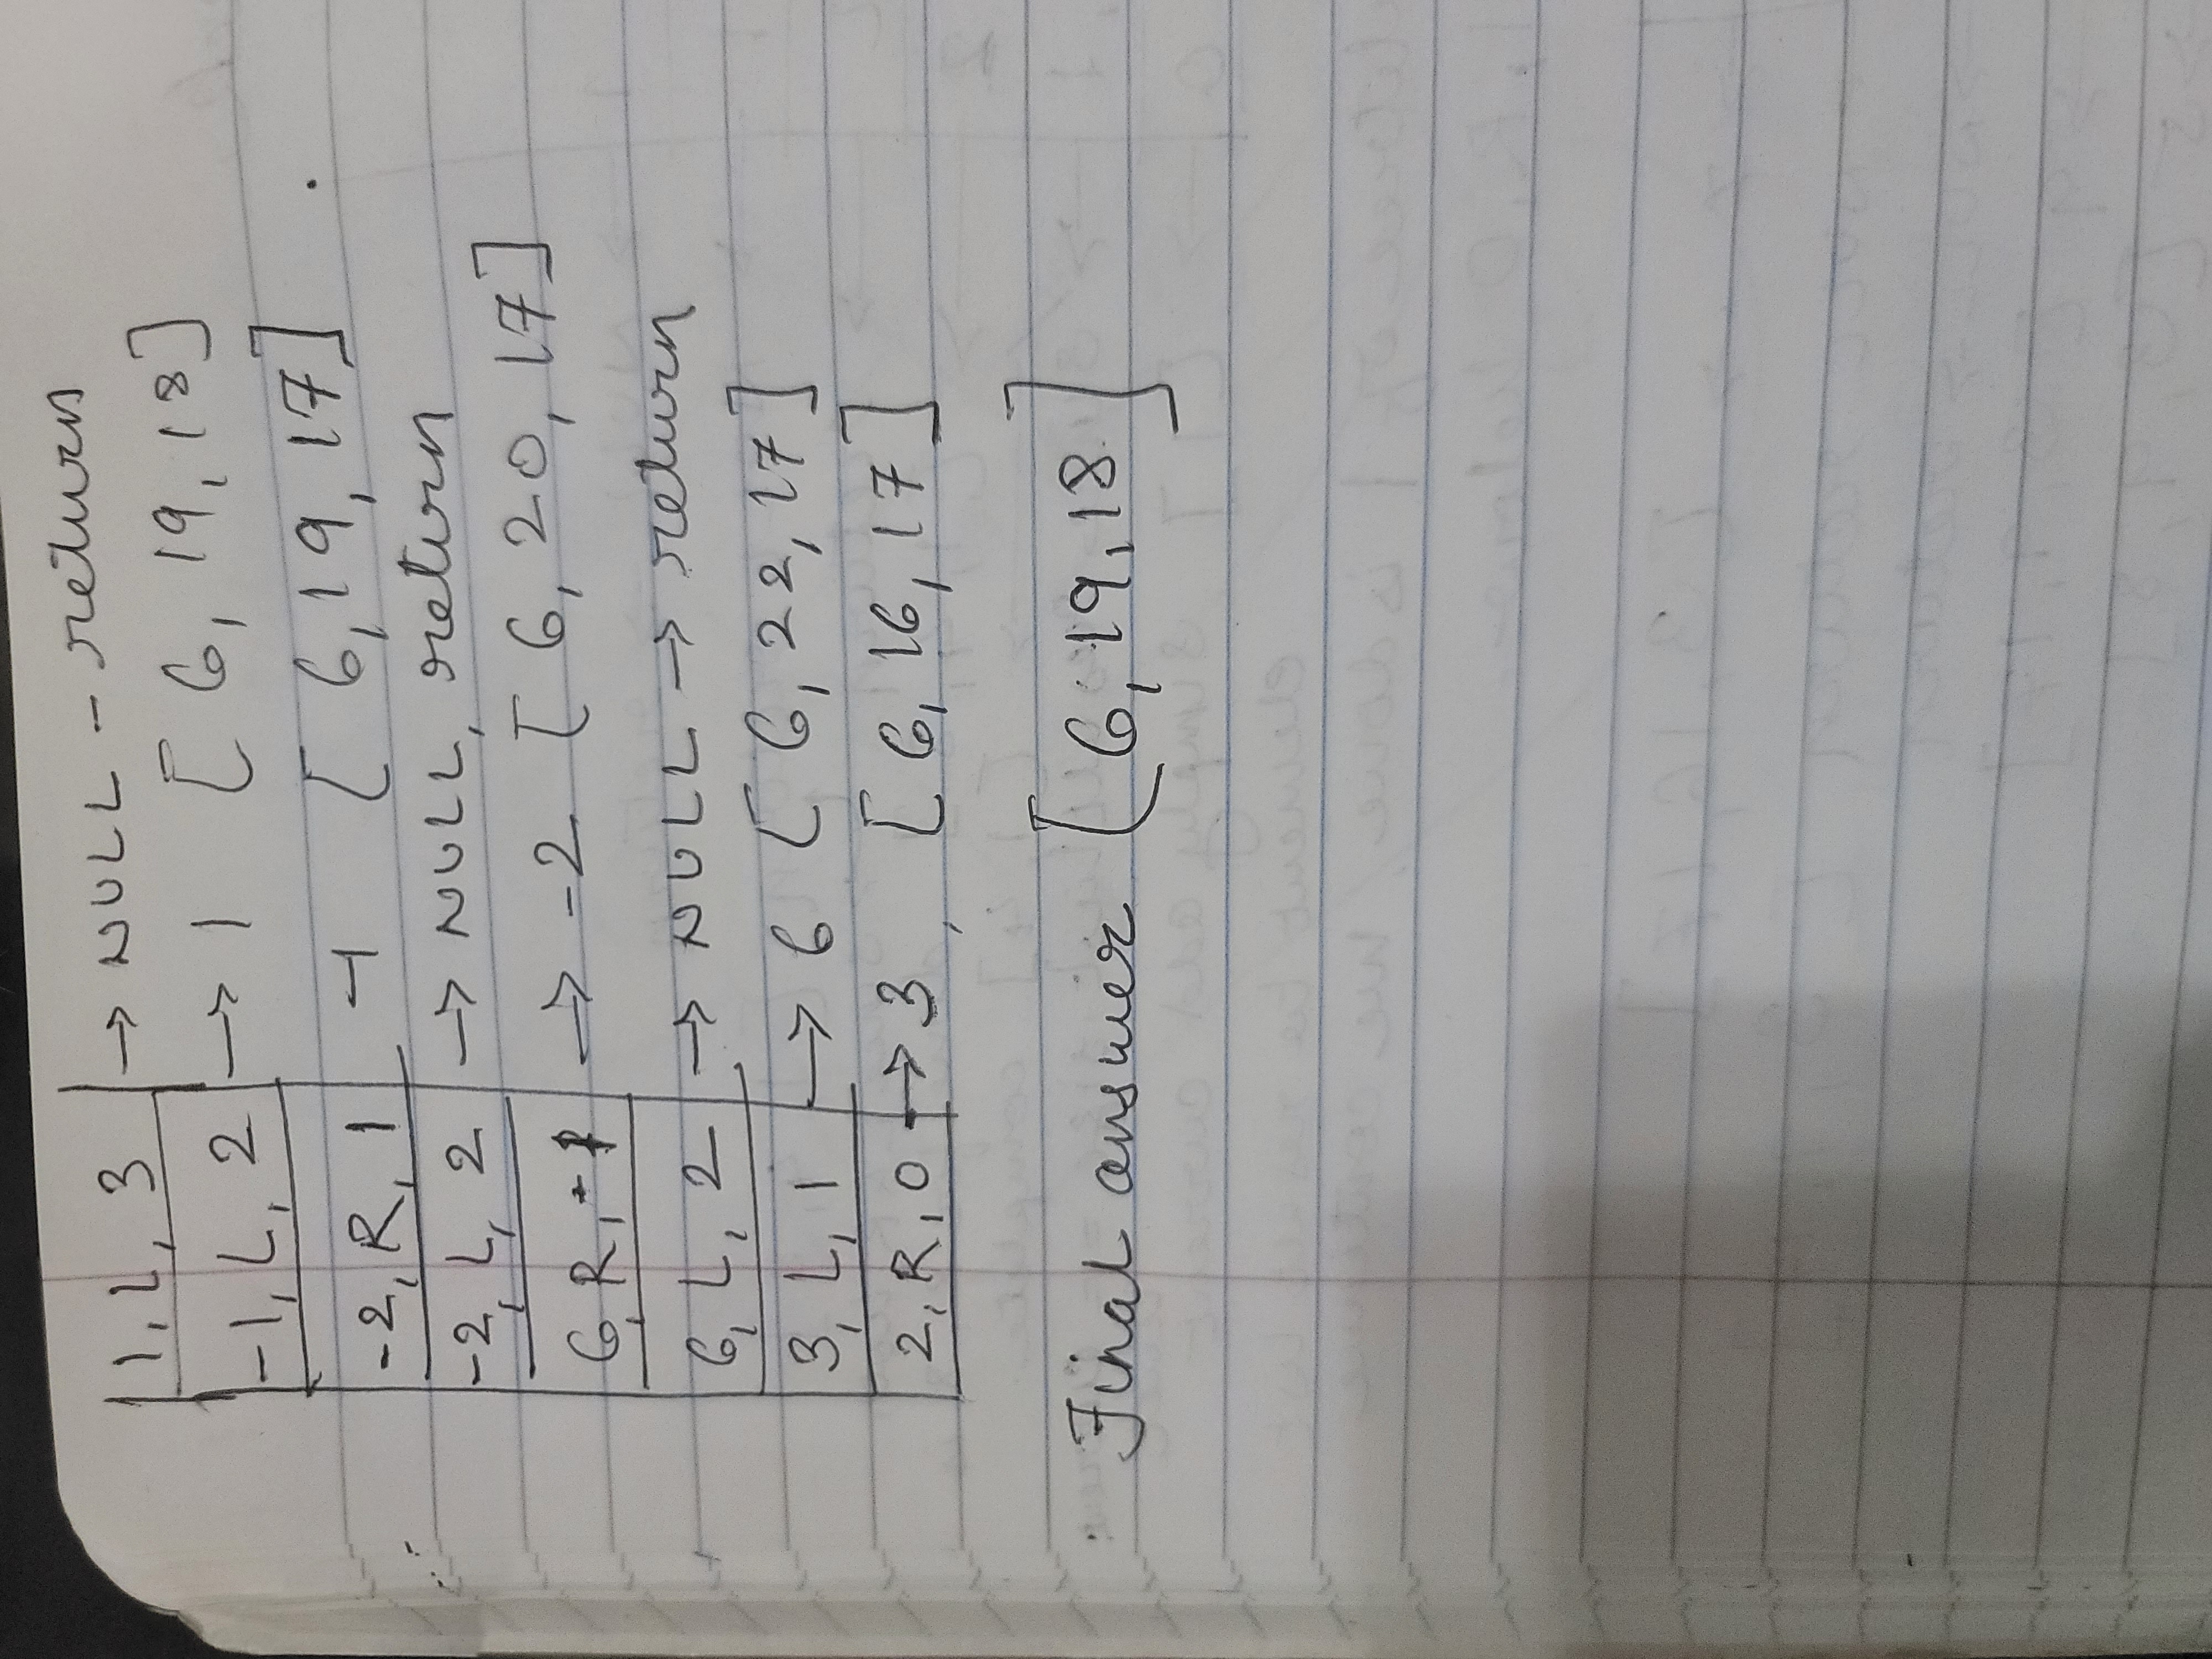 1, L, 3 → NULL - return
-1, L, 2 → 1 [ 6, 19, 18 ]
-2, R, 1 -1 [ 6, 19, 17 ]
-2, L, 2 → NULL, return
6, R, -1 → -2 [ 6, 20, 17 ]
6, L, 2 → NULL → return
3, L, 1 → 6 [ 6, 22, 17 ]
2, R, 0 → 3, [ 6, 16, 17 ]
Final answer [ 6, 19, 18 ]